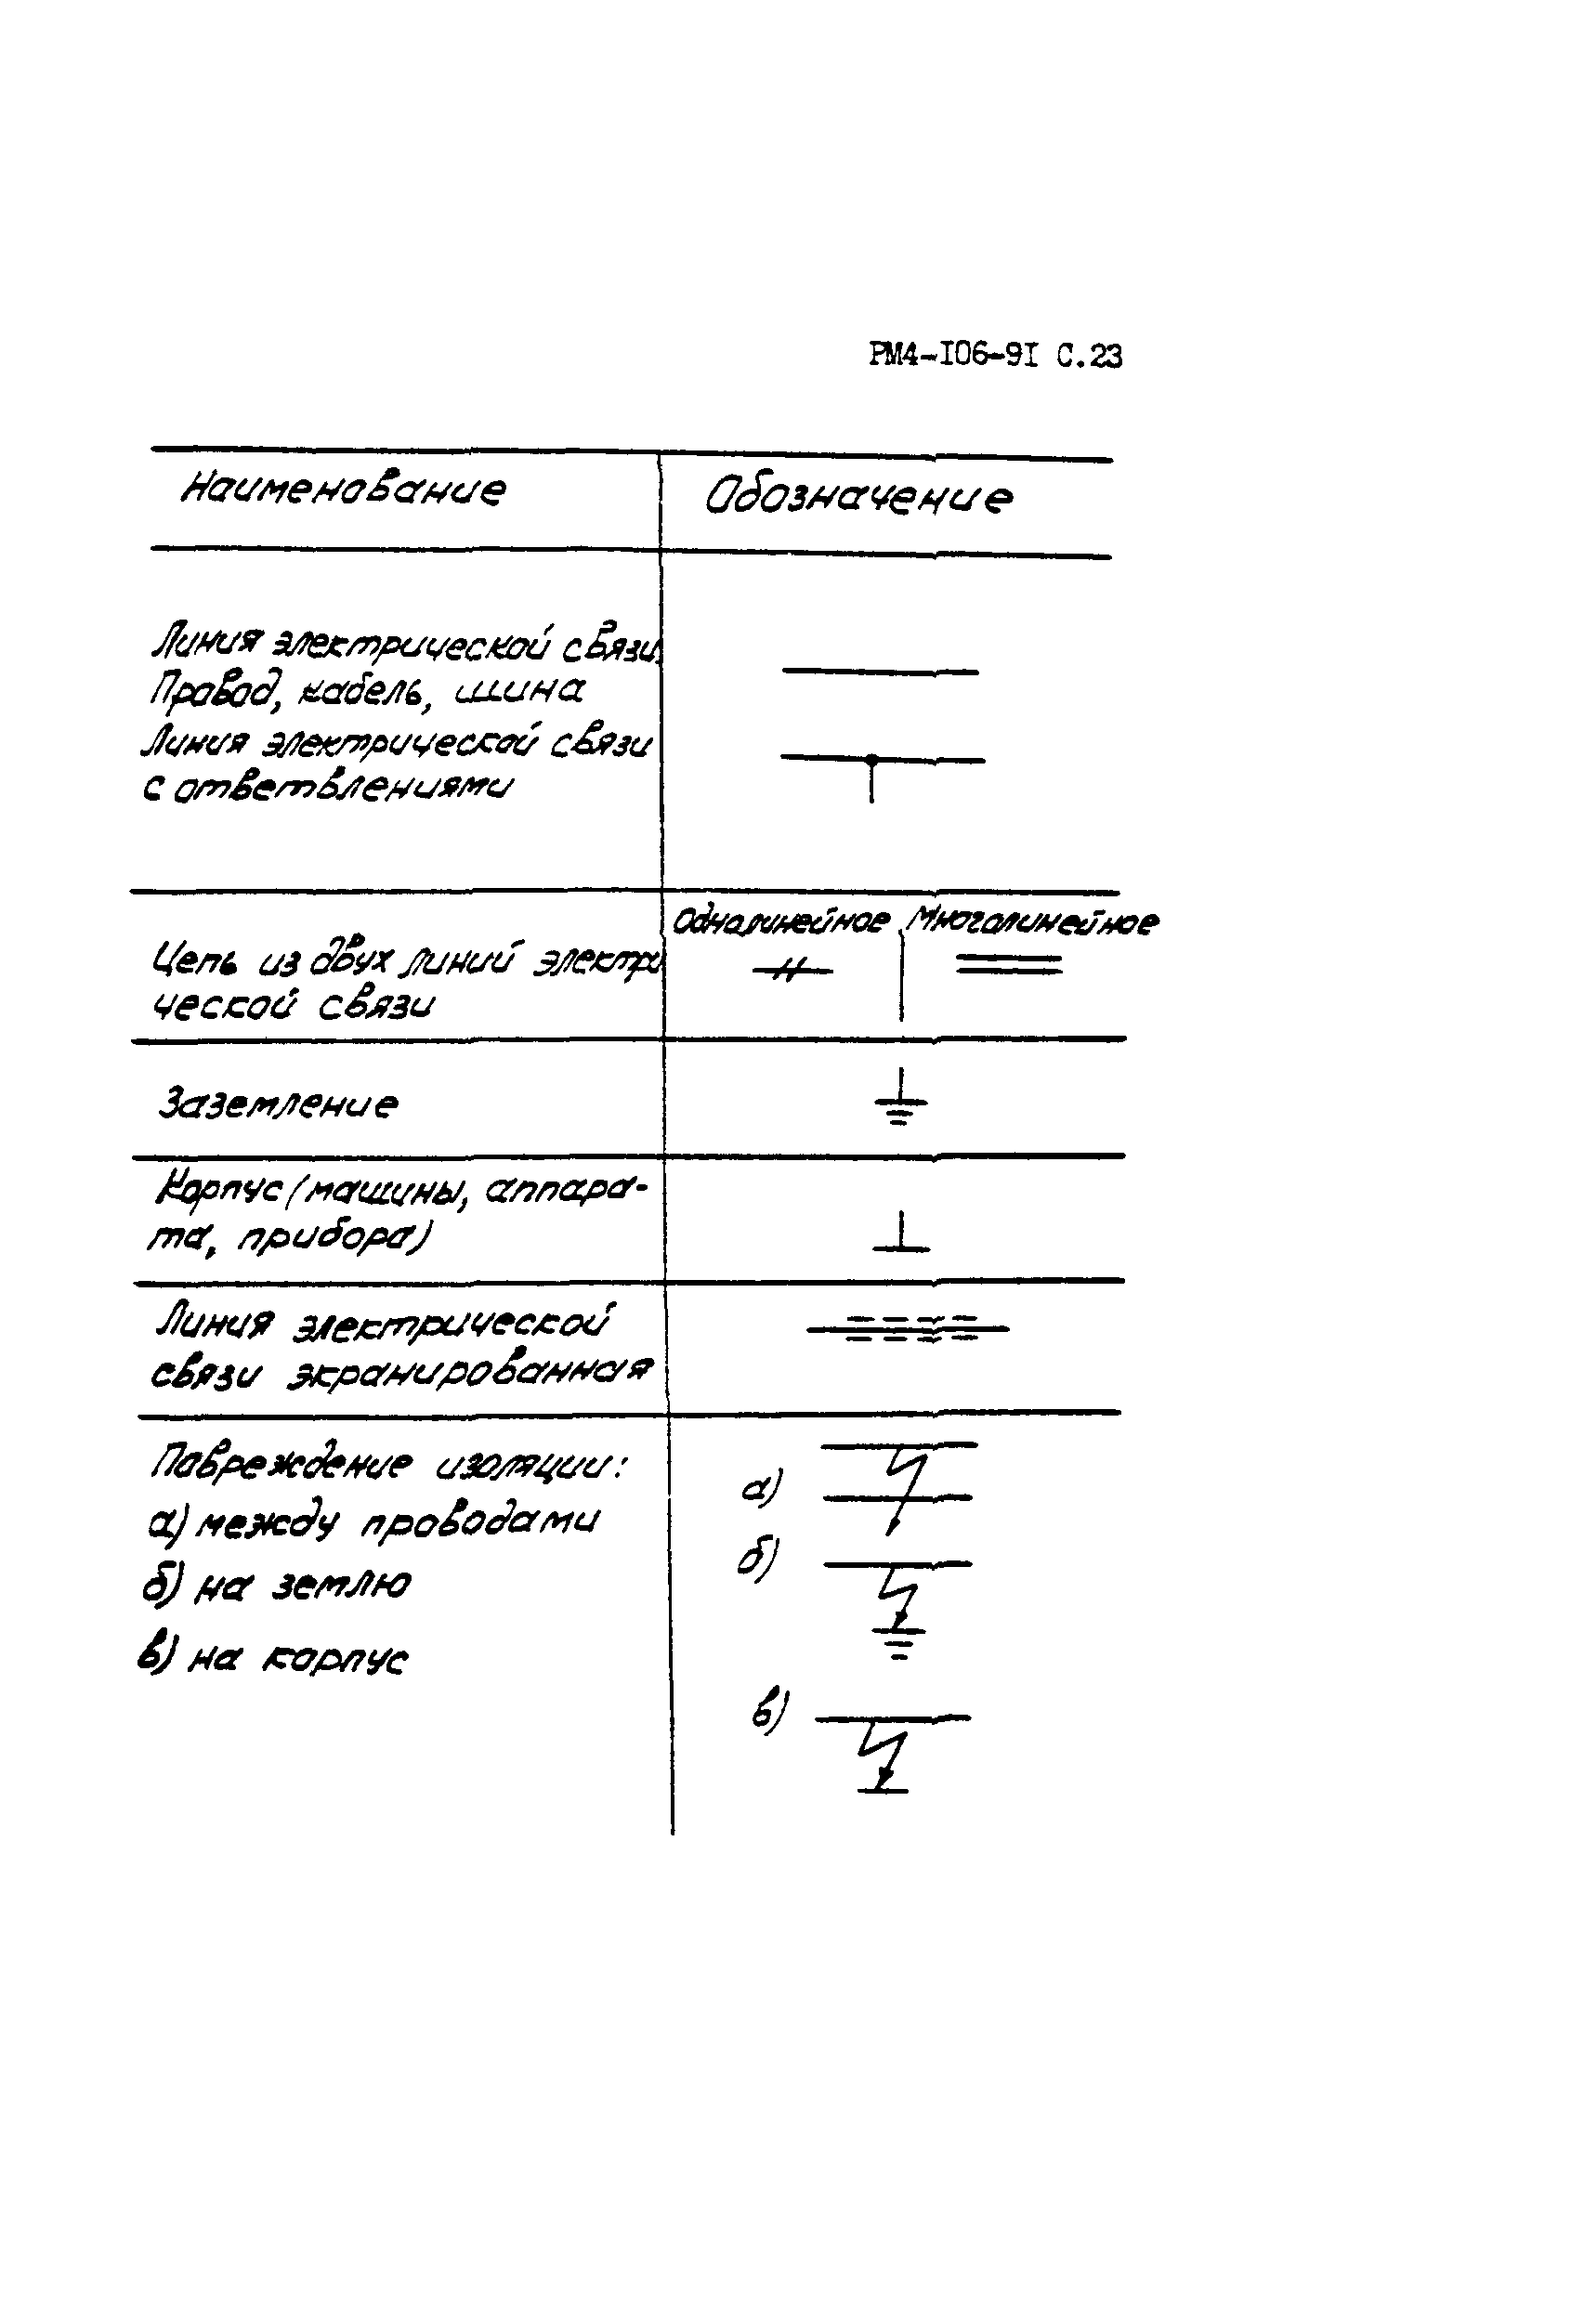 РМ4-I06-9I С.23
Наименование
Обозначение
Линия электрической связи.
Провод, кабель, шина
Линия электрической связи
с ответвлениями
Цепь из двух линий электри
ческой связи
Однолинейное
Многолинейное
Заземление
Корпус (машины, аппара-
та, прибора)
Линия электрической
связи экранированная
Повреждение изоляции:
а) между проводами
б) на землю
в) на корпус
а)
б)
в)